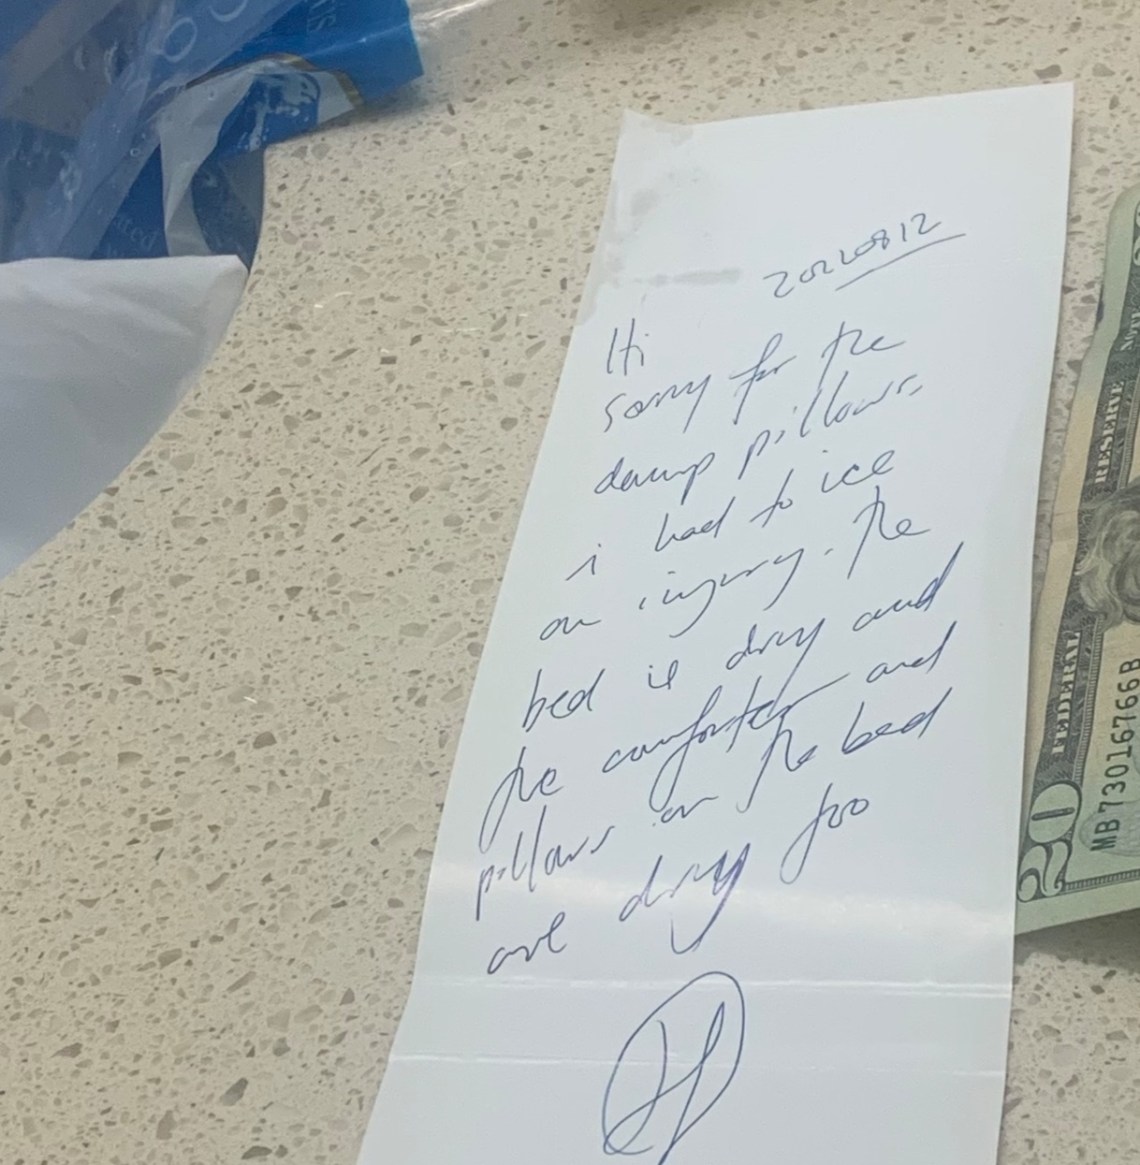 20220812
Hi
sorry for the
damp pillows,
i had to ice
an injury. the
bed is dry and
the comforter and
pillows on the bed
are dry too
FEDERAL RESERVE
MB73016766B
20
ated